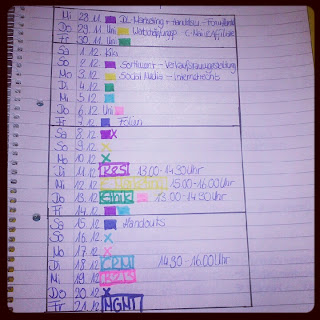 Mi 28.11.
Do 29.11. Uni
Fr 30.11. Uni
Sa 1.12. Kira
So 2.12. Sortiment + Verkaufsraumgestaltung
Mo 3.12. Social Media - Internetrecht
Di 4.12
Mi 5.12
Do 6.12 Uni
Fr 7.12 Folien
Sa 8.12 X
So 9.12 X
Mo 10.12 X
Di 11.12 R&S 13:00-14:30 Uhr
Mi 12.12 15:00-16:00 Uhr
Do 13.12 Ethik 13:00-14:30 Uhr
Fr 14.12
Sa 15.12 Handouts
So 16.12 X
Mo 17.12 X
Di 18.12 CPM 14:30-16:00 Uhr
Mi 19.12
Do 20.12 X
Fr 21.12 MGMT